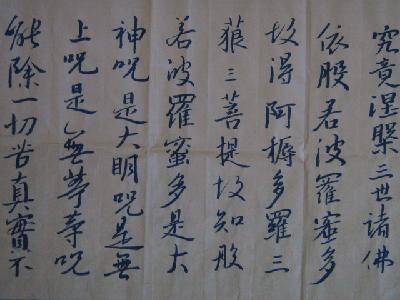 究竟涅槃三世諸佛
依般若波羅蜜多
故得阿耨多羅三
藐三菩提故知般
若波羅蜜多是大
神呪是大明呪是無
上呪是無等等呪
能除一切苦真實不